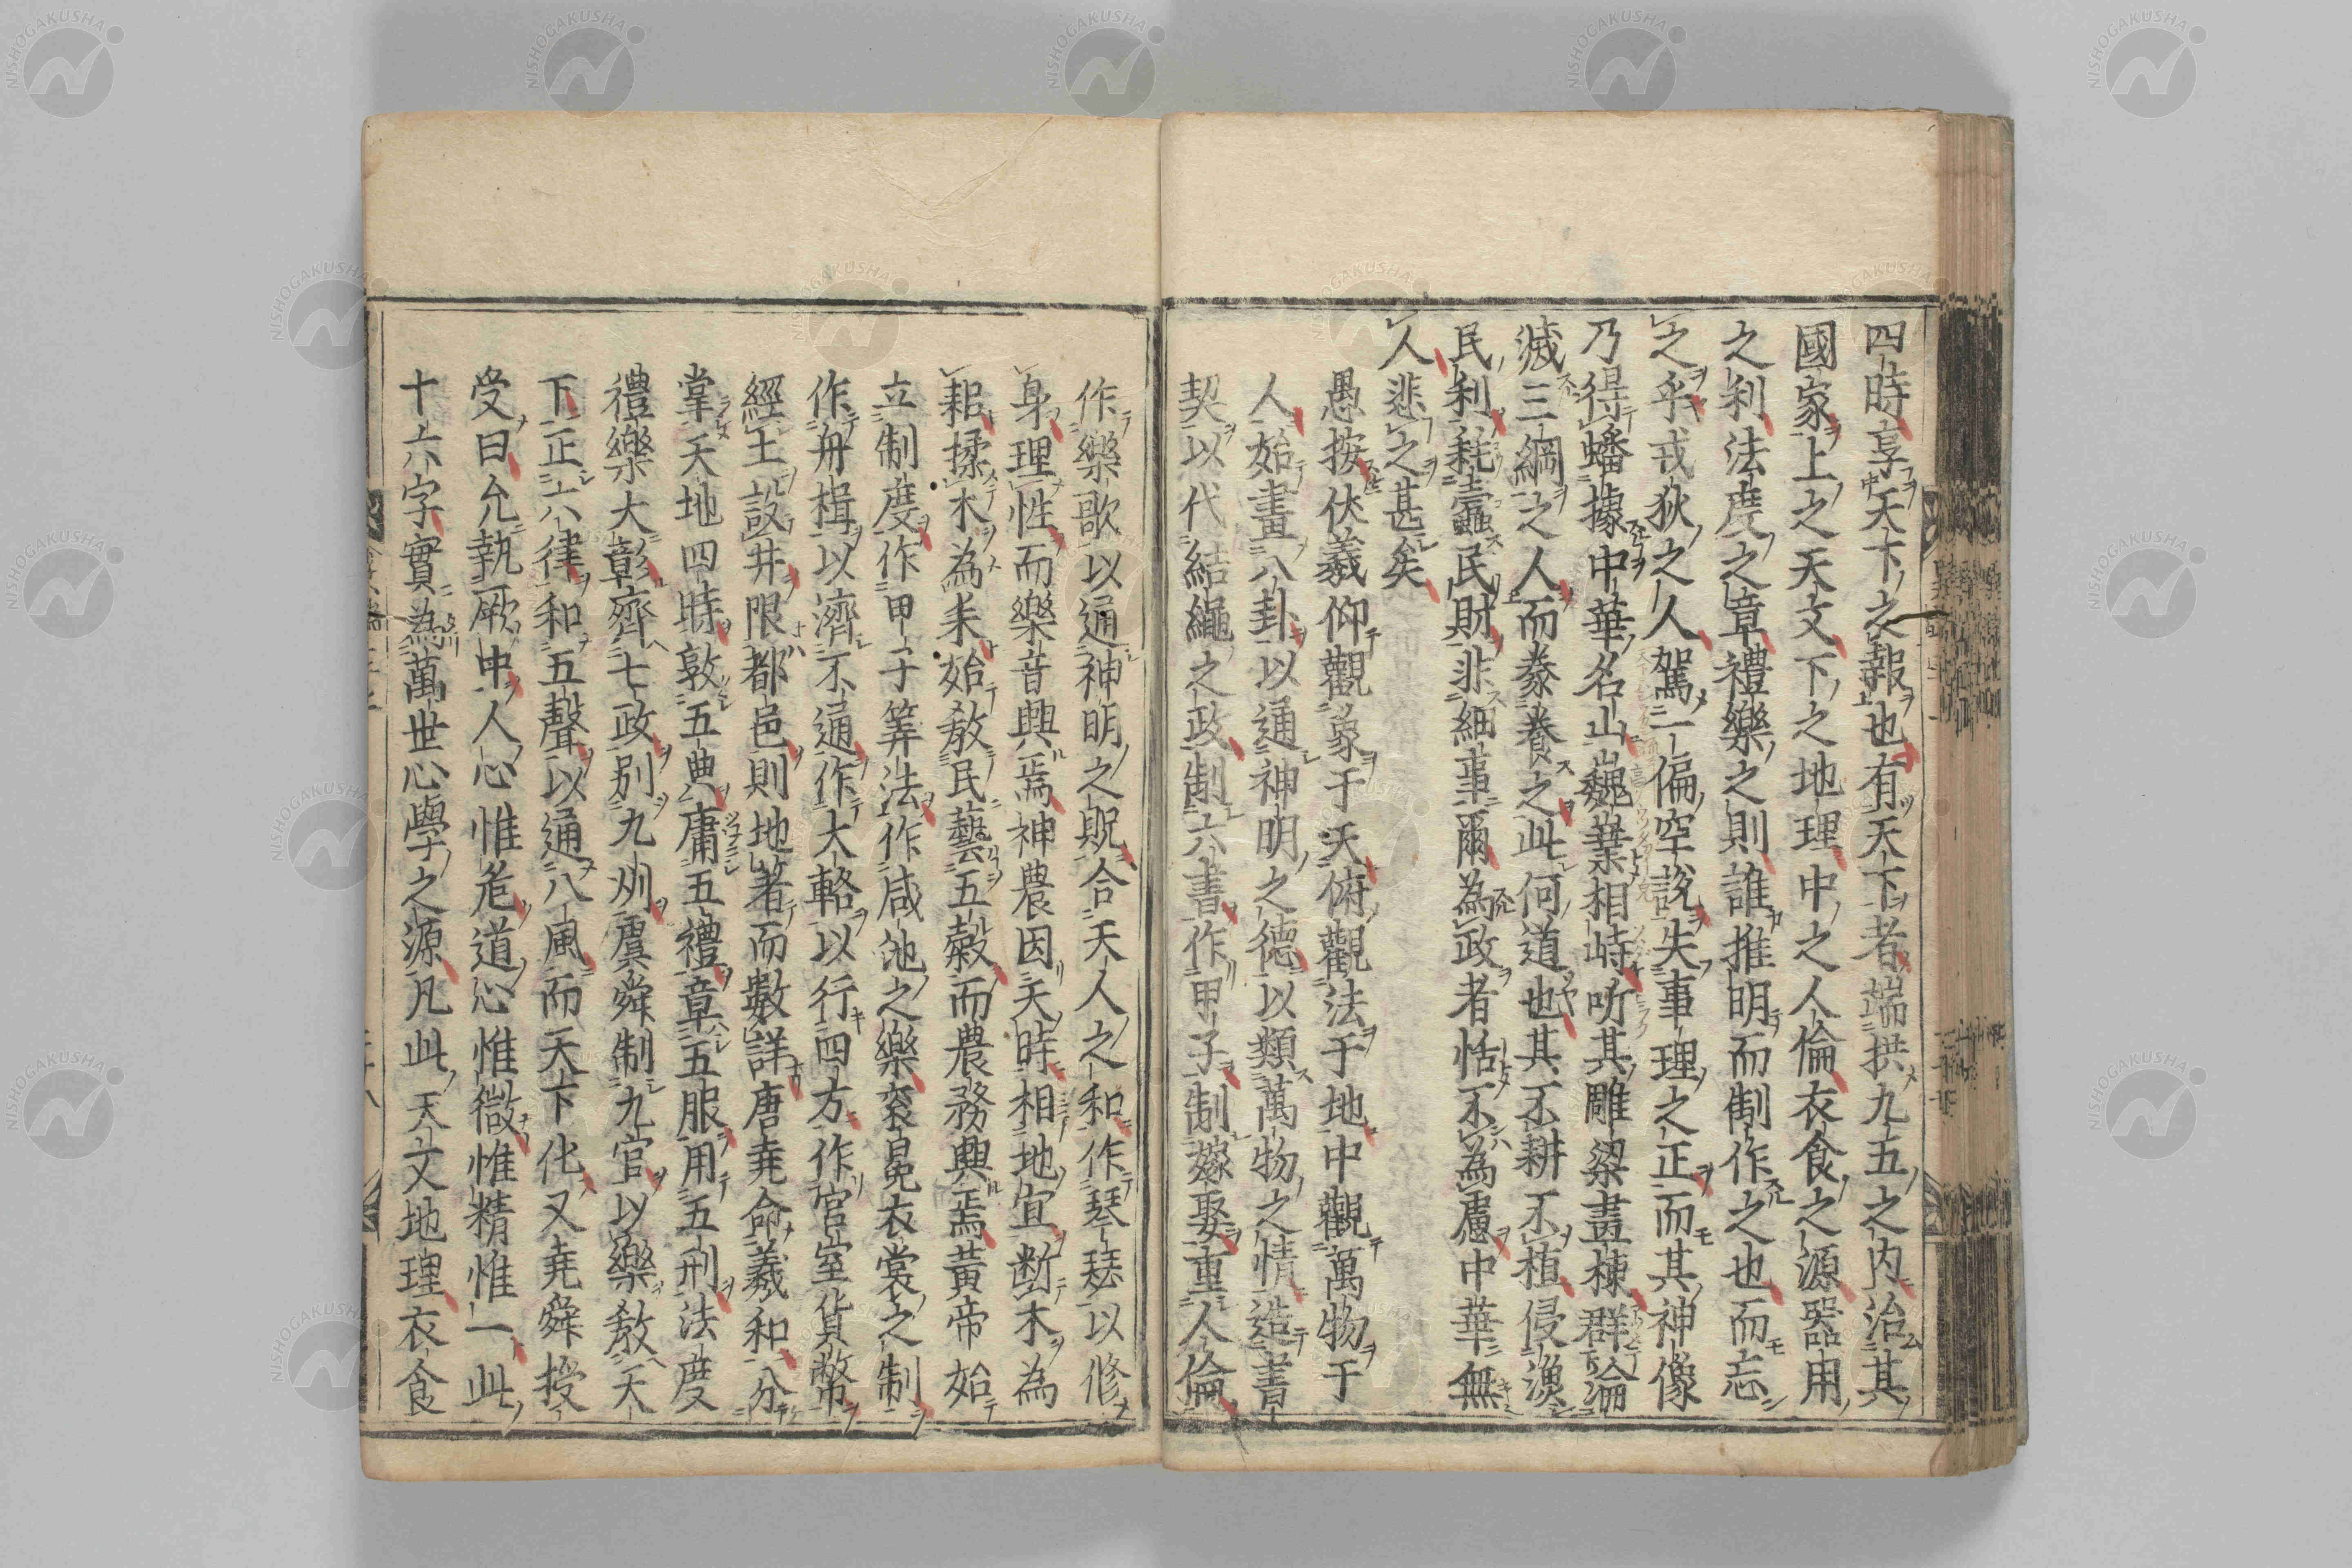 四時享天下之報也有天下者端拱九五之内治其
國家上之天文下之地理中之人倫衣食之源器用
之利法度之章禮樂之則誰推明而制作之也而忘
之乎戎狄之人駕一偏空說失事理之正而其神像
乃得蟠據中華名山巍業相峙所其雕梁畫棟群淪
滅三綱之人而豢養之此何道也其不耕不植侵漁
民利耗蠹民財非細事爾為政者恬不為慮中華無
人悲之甚矣
愚按伏羲仰觀象于天俯觀法于地中觀萬物于
人始畫八卦以通神明之德以類萬物之情造書
契以代結繩之政制六書作甲子制嫁娶重人倫
作樂歌以通神明之貺合天人之和作琴瑟以修
身理性而樂音興焉神農因天時相地宜斷木為
耜揉木為耒始教民藝五穀而農務興焉黃帝始
立制度作甲子筭法作咸池之樂袞冕衣裳之制
作舟楫以濟不通作大輅以行四方作宮室貨幣
經土設井限都邑則地著而數詳唐堯命羲和分
掌天地四時敦五典庸五禮章五服用五刑法度
禮樂大彰齊七政別九州虞舜制九官以樂教天
下正六律和五聲以通八風而天下化又堯舜授
受曰允執厥中人心惟危道心惟微惟精惟一此
十六字實為萬世心學之源凡此天文地理衣食
NISHOGAKUSHA